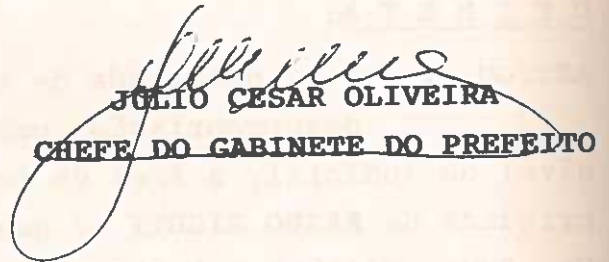 JÚLIO CESAR OLIVEIRA
CHEFE DO GABINETE DO PREFEITO